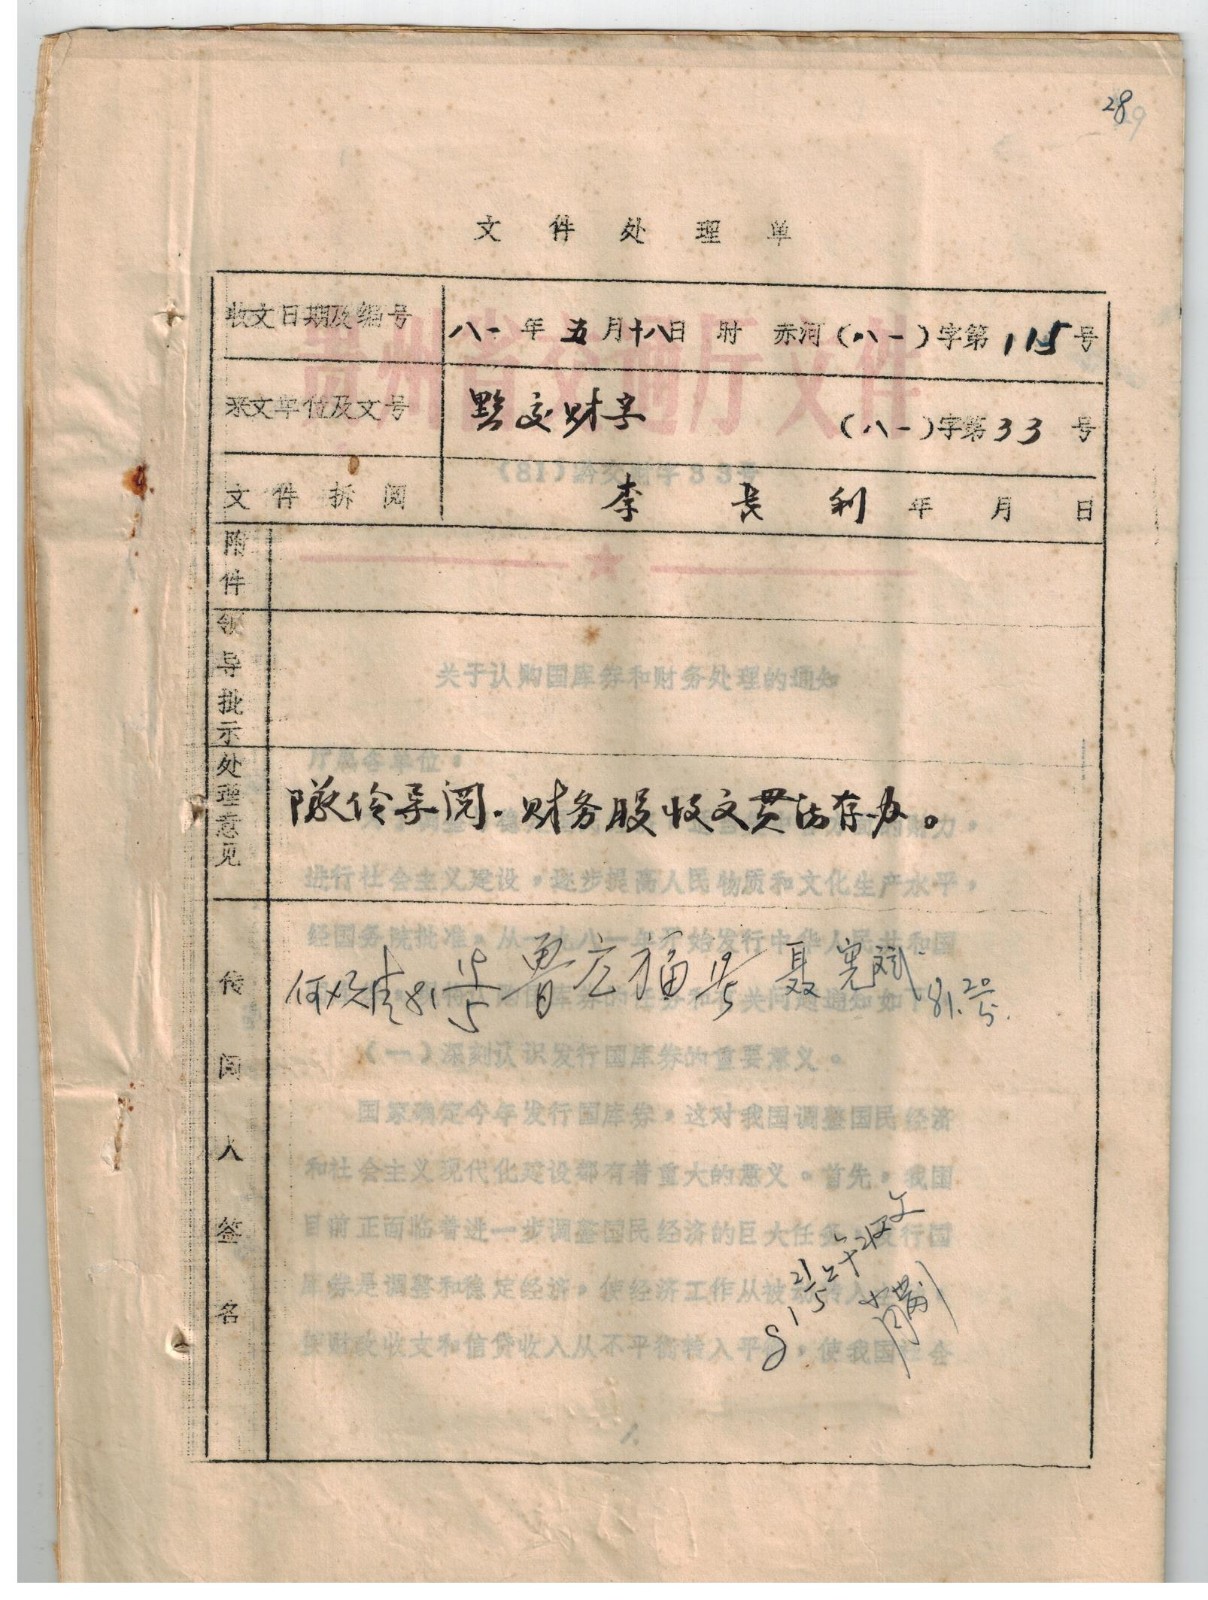 28
文件处理单
收文日期及编号 八一年五月十八日 时 赤河(八一)字第115号
来文单位及文号 黔交财字 (八一)字第33号
文件拆阅 李长利 年 月 日
附件
领导批示处理意见
队领导阅。财务股收文贯彻存办。
传阅人签名
鲁应福 聂宪斌 81.20/5.
81 21/5 收文
贵州省交通厅文件
(81)黔交财字33号
关于认购国库券和财务处理的通知
厅属各单位:
进行社会主义建设,逐步提高人民物质和文化生产水平,
经国务院批准,从一九八一年开始发行中华人民共和国
(一)深刻认识发行国库券的重要意义。
国家确定今年发行国库券,这对我国调整国民经济
和社会主义现代化建设都有着重大的意义。首先,我国
目前正面临着进一步调整国民经济的巨大任务,发行国
库券是调整和稳定经济,使经济工作从被动转入
使财政收支和信贷收入从不平衡转入平衡,使我国社会